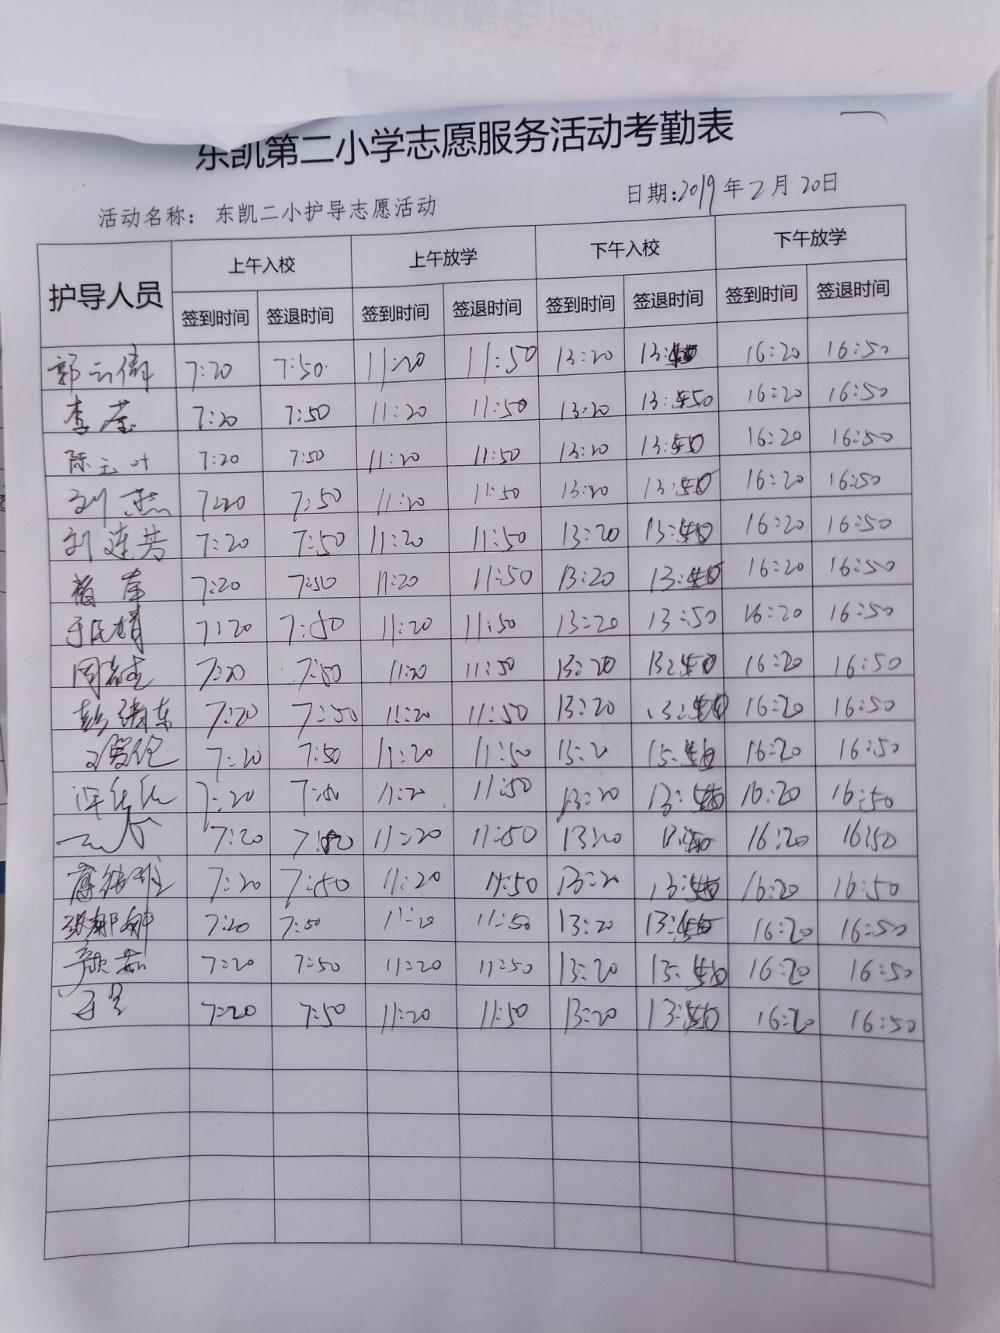 东凯第二小学志愿服务活动考勤表
活动名称： 东凯二小护导志愿活动 日期:2019年2月20日
护导人员 上午入校 上午放学 下午入校 下午放学
签到时间 签退时间 签到时间 签退时间 签到时间 签退时间 签到时间 签退时间
7:20 7:50 11:20 11:50 13:20 16:20 16:50
李莹 7:20 7:50 11:20 11:50 13:20 16:20 16:50
陈玉叶 7:20 7:50 11:20 11:50 13:20 16:20 16:50
刘杰 7:20 7:50 11:20 11:50 13:20 16:20 16:50
刘连芳 7:20 7:50 11:20 11:50 13:20 16:20 16:50
7:20 7:50 11:20 11:50 13:20 16:20 16:50
于民婧 7:20 7:50 11:20 11:50 13:20 13:50 16:20 16:50
7:20 7:50 11:20 11:50 13:20 16:20 16:50
7:20 7:50 11:20 11:50 13:20 16:20 16:50
7:20 7:50 11:20 11:50 16:20 16:50
7:20 7:50 11:20 11:50 13:20 16:20 16:50
7:20 7:50 11:20 11:50 13:20 16:20 16:50
7:20 7:50 11:20 11:50 13:20 16:20 16:50
张娜娜 7:20 7:50 11:20 11:50 13:20 16:20 16:50
颜茹 7:20 7:50 11:20 11:50 13:20 16:20 16:50
7:20 7:50 11:20 11:50 13:20 16:20 16:50